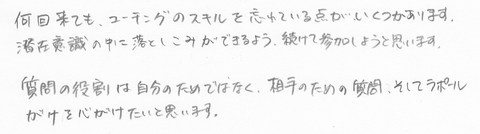 何回来ても、コーチングのスキルを忘れている点がいくつかあります。
潜在意識の中に落としこみができるよう、続けて参加しようと思います。
質問の役割は自分のためではなく、相手のための質問、そしてラポール
がけを心がけたいと思います。